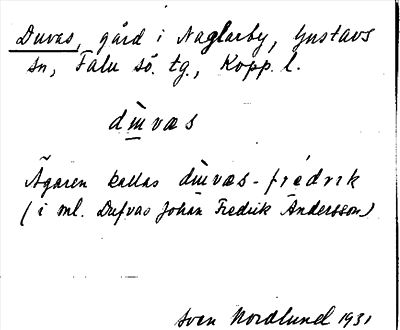 Duvas, gård i Naglarby, Gustavs
sn, Falu sö. tg., Kopp. l.
dɯ̀vas
Ägaren kallas dɯ̀vas-frédrɪk
(i ml. Dufvas Johan Fredrik Andersson)
Sven Nordlund 1931